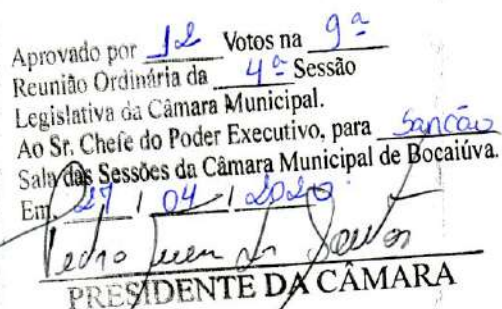 Aprovado por 12 Votos na 9ª
Reunião Ordinária da 4ª Sessão
Legislativa da Câmara Municipal.
Ao Sr. Chefe do Poder Executivo, para Sanção
Sala das Sessões da Câmara Municipal de Bocaiúva.
Em, 27 / 04 / 2020
Pedro
PRESIDENTE DA CÂMARA